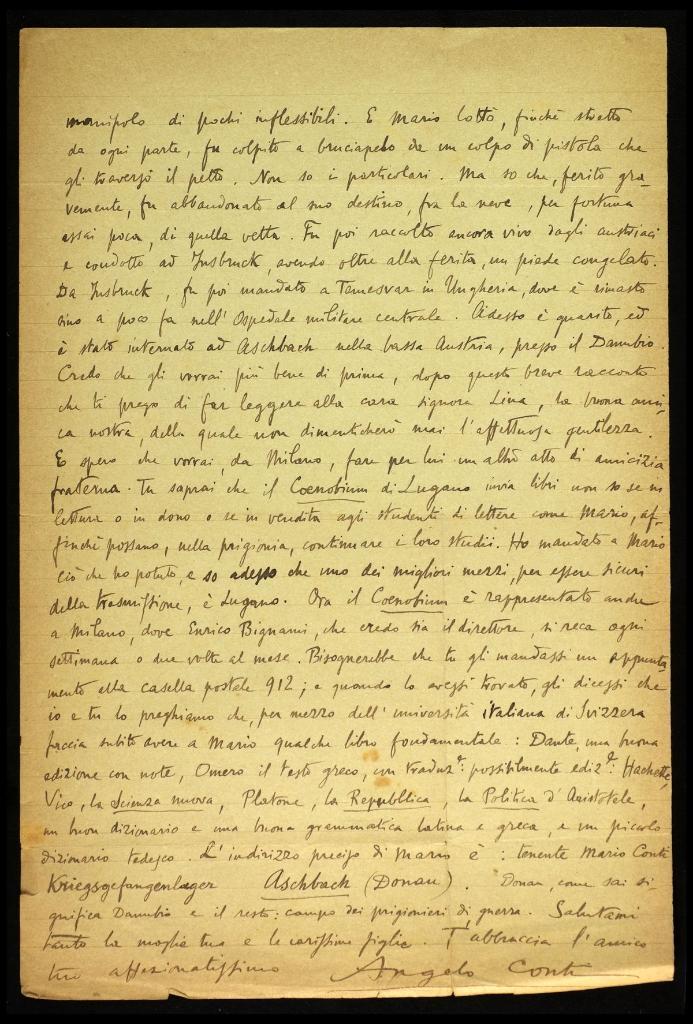 manipolo di pochi inflessibili. E Mario lottò, finché stretto
da ogni parte, fu colpito a bruciapelo da un colpo di pistola che
gli traversò il petto. Non so i particolari. Ma so che, ferito gra-
vemente, fu abbandonato al suo destino, fra la neve, per fortuna
assai poca, di quella vetta. Fu poi raccolto ancora vivo dagli austriaci
e condotto ad Insbruck, avendo oltre alla ferita, un piede congelato.
Da Insbruck, fu poi mandato a Temesvar in Ungheria, dove è rimasto
sino a poco fa nell'Ospedale militare centrale. Adesso è guarito, ed
è stato internato ad Aschbach nella bassa Austria, presso il Danubio.
Credo che gli vorrai più bene di prima, dopo questo breve racconto
che ti prego di far leggere alla cara signora Lina, la buona ami-
ca nostra, della quale non dimenticherò mai l'affettuosa gentilezza.
E spero che vorrai, da Milano, fare per lui un altro atto di amicizia
fraterna. Tu saprai che il Coenobium di Lugano invia libri non so se in
lettura o in dono o se in vendita agli studenti di lettere come Mario, af-
finché possano, nella prigionia, continuare i loro studii. Ho mandato a Mario
ciò che ho potuto, e so adesso che uno dei migliori mezzi, per essere sicuri
della trasmissione, è Lugano. Ora il Coenobium è rappresentato anche
a Milano, dove Enrico Bignami, che credo sia il direttore, si reca ogni
settimana o due volte al mese. Bisognerebbe che tu gli mandassi un appunta-
mento alla casella postale 912; e quando lo avessi trovato, gli dicessi che
io e tu lo preghiamo che, per mezzo dell'università italiana di Svizzera
faccia subito avere a Mario qualche libro fondamentale: Dante, una buona
edizione con note, Omero il testo greco, con traduz.e possibilmente ediz.e Hachette,
Vico, la Scienza nuova, Platone, la Repubblica, la Politica d'Aristotele,
un buon dizionario e una buona grammatica latina e greca, e un piccolo
dizionario tedesco. L'indirizzo preciso di Mario è: tenente Mario Conti
Kriegsgefangenlager Aschbach (Donau). Donau, come sai si-
gnifica Danubio e il resto: campo dei prigionieri di guerra. Salutami
tanto la moglie tua e le carissime figlie. T'abbraccia l'amico
tuo affezionatissimo Angelo Conti